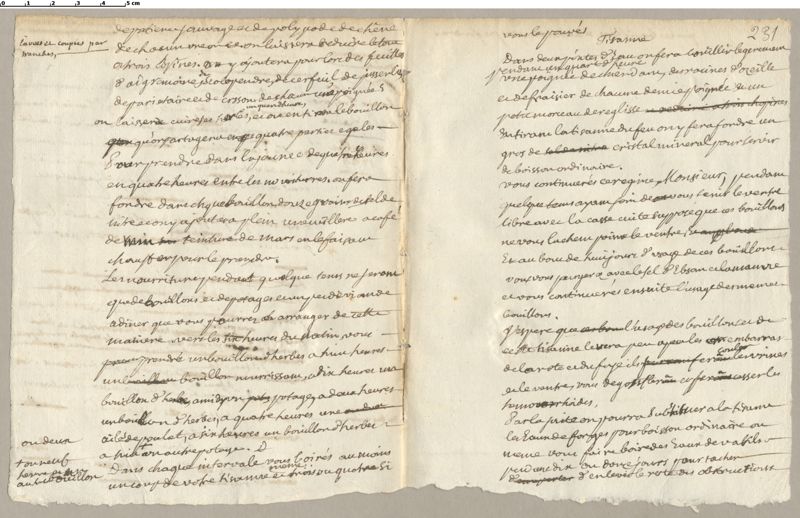 de patience sauvage et de polypode de chêne
lavées et coupées par
tranches,
de chacun une once on laissera reduire le tout
a trois chopines, on y ajoutera pour lors des feuilles
d'aigremoine de scolopendre, de cerfeuil de pissenlis
de parietaire et de cresson de chacun une poignée
on laissera cuire le bouillon
quatre parties egales
pour prendre dans la journée de quatre heures
en quatre heures entre les nourritures, on fera
fondre dans chaque bouillon douze grains de sel de
et on y ajoutera plein une cuillere a caffé
de teinture de mars on le faisant
chauffer pour le prendre.
Les nourritures pendant quelque tems ne seront
que de bouillons et de potages et un peu de viande
a diner que vous pourrez arranger de cette
maniere, vers les heures du matin, vous
prendré un bouillon d'herbes a huit heures
un bouillon nourrissant, a dix heures un
bouillon d'herbe, a midy un potage, a deux heures
un bouillon d'herbes, a quatre heures une
aile de poulet, a six heures un bouillon d'herbes
a huit un autre potage.
ou deux
tout neuf
heures
autre bouillon
Dans chaque intervale vous boirés au moins
un coup de votre tisanne et meme trois ou quatre si
vous le pouvés
231
Tisanne
Dans deux pintes d'eau on fera bouillir legerement
pendant un quart d'heure
une poignée de chiendan, des racines d'ozeille
et de fraisier de chacune demie poignée ou un
petit morceau de reglisse
tirant la tisanne du feu on y fera fondre un
gros de cristal mineral pour servir
de boisson ordinaire.
Vous continuerés ce regime, Monsieur, pendant
quelque tems ayant soin de vous tenir le ventre
libre avec la casse cuite supposé que ces bouillons
ne vous lachent point le ventre,
Et au bout de huit jours d'usage de ces boüillons
vous vous purgerés avec le sel d'Ebsan et la manne
et vous continuerés ensuite l'usage des mêmes
bouillons.
J'espere que l'usage des bouillons et de
cette tisanne levera peu a peu les embarras
de la rate et du foye ils feront couler les urines
et le ventre, vous degonfleront et feront cesser les
hemorrhoïdes.
Par la suite on pourra substituer a la tisanne
les Eaux de forges pour boisson ordinaire ou
meme vous faire boire des Eaux de vals
pendant dix ou douze jours pour tacher
d'enlever le reste des obstructions